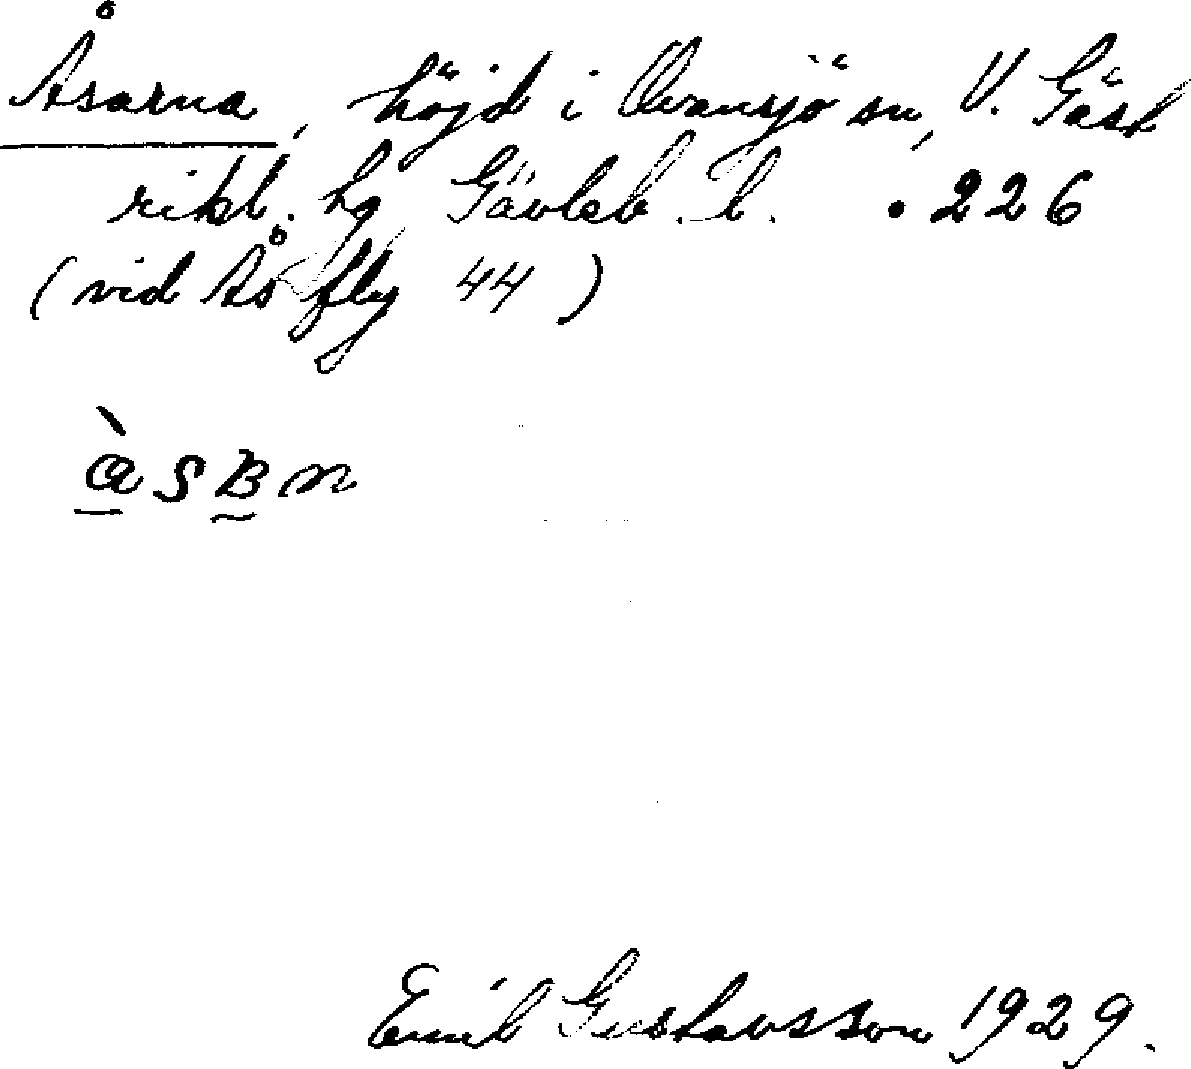 Åsarna, höjd i Ovansjö sn, V. Gäst
rikl. hg Gävleb. l. . 226
(vid Ås fly 44)
Emil Gustavsson 1929.